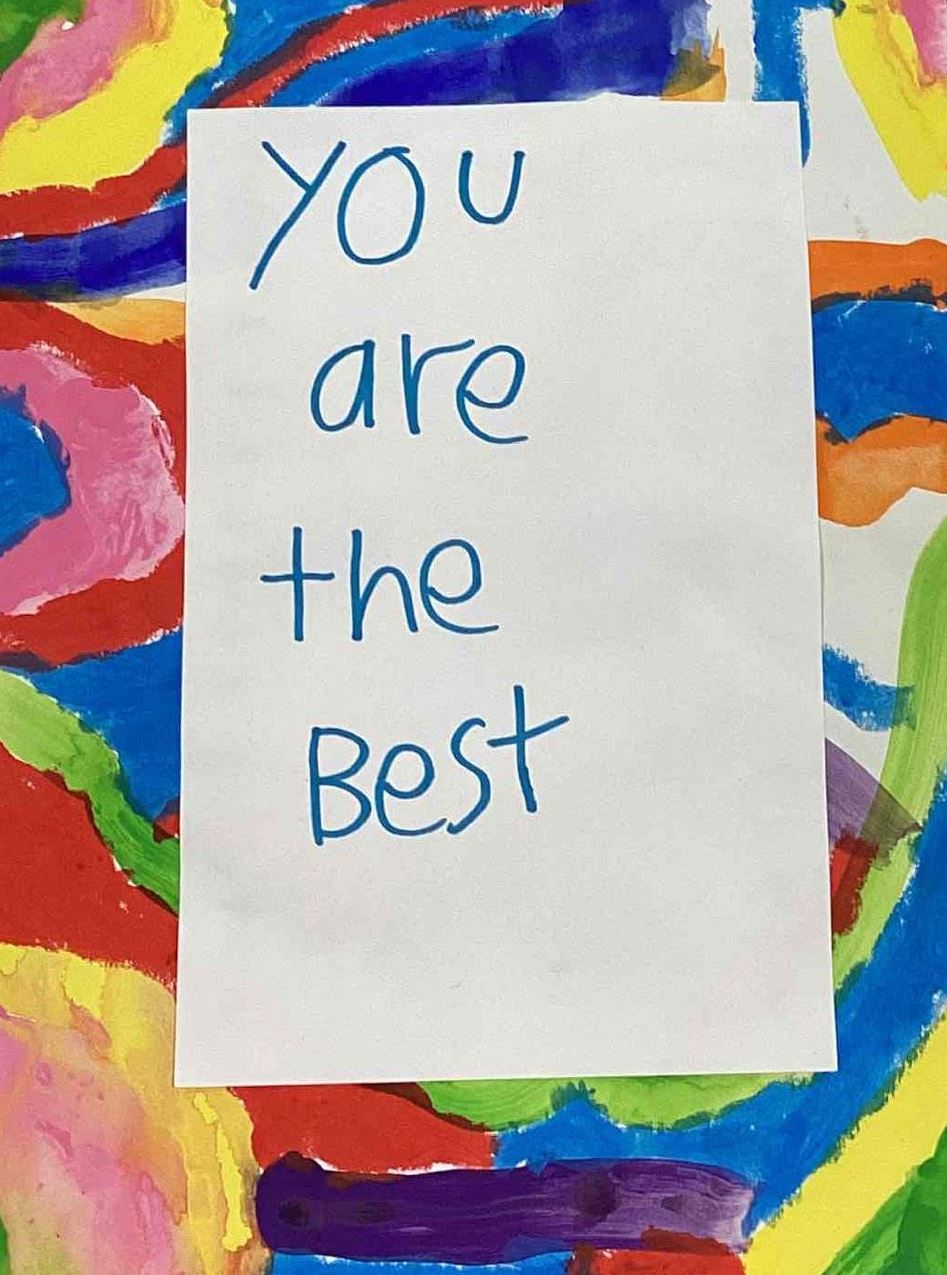 YOU
are
the
Best